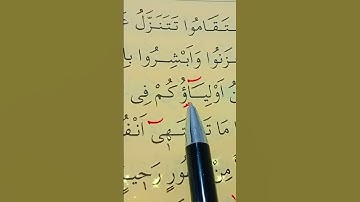 تَقَامُوا تَتَنَزَّلُ
زَنُوا وَاَبْشِرُوا
اَوْلِيَاۤؤُكُمْ فِى
مَا تَشْتَهٖىۤ اَنْفُ
مِنْ غَفُورٍ رَحٖيمٍ